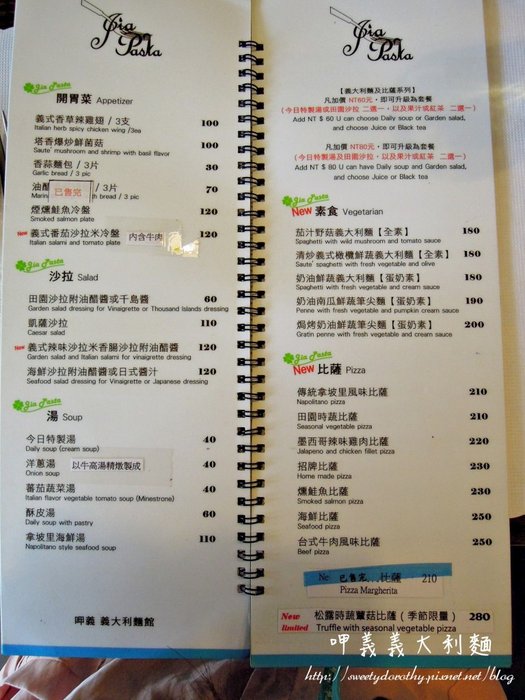 Jia Pasta
Jia Pasta
開胃菜 Appetizer
義式香草辣雞翅 / 3支 100
Italian herb spicy chicken wing /3ea
塔香爆炒鮮菌菇 100
Saute' mushroom and shrimp with basil flavor
香蒜麵包 / 3片 30
Garlic bread / 3 pic
油醋 已售完 / 3片 70
/ 3 pic
煙燻鮭魚冷盤 120
Smoked salmon plate
New 義式番茄沙拉米冷盤 內含牛肉 120
Italian salami and tomato plate
Jia Pasta
沙拉 Salad
田園沙拉附油醋醬或千島醬 60
Garden salad dressing for Vinaigrette or Thousand Islands dressing
凱薩沙拉 110
Caesar salad
New 義式辣味沙拉米香腸沙拉附油醋醬 120
Garden salad and Italian salami for vinaigrette dressing
海鮮沙拉附油醋醬或日式醬汁 120
Seafood salad dressing for Vinaigrette or Japanese dressing
Jia Pasta
湯 Soup
今日特製湯 40
Daily soup (cream soup)
洋蔥湯 以牛高湯精燉製成 40
Onion soup
蕃茄蔬菜湯 40
Italian flavor vegetable tomato soup (Minestrone)
酥皮湯 60
Daily soup with pastry
拿坡里海鮮湯 110
Napolitano style seafood soup
呷義 義大利麵館
Jia Pasta
【義大利麵及比薩系列】
凡加價 NT60元，即可升級為套餐
(今日特製湯或田園沙拉 二選一，以及果汁或紅茶 二選一)
Add NT $ 60 U can choose Daily soup or Garden salad,
and choose Juice or Black tea
凡加價 NT80元，即可升級為套餐
(今日特製湯及田園沙拉，以及果汁或紅茶 二選一)
Add NT $ 80 U can have Daily soup and Garden salad,
and choose Juice or Black tea
Jia Pasta
New 素食 Vegetarian
茄汁野菇義大利麵【全素】 180
Spaghetti with wild mushroom and tomato sauce
清炒義式橄欖鮮蔬義大利麵【全素】 180
Saute' spaghetti with fresh vegetable and olive
奶油鮮蔬義大利麵【蛋奶素】 180
Spaghetti with fresh vegetable and cream sauce
奶油南瓜鮮蔬筆尖麵【蛋奶素】 190
Penne with fresh vegetable and pumpkin cream sauce
焗烤奶油鮮蔬筆尖麵【蛋奶素】 200
Gratin penne with fresh vegetable and cream sauce
Jia Pasta
New 比薩 Pizza
傳統拿坡里風味比薩 210
Napolitano pizza
田園時蔬比薩 210
Seasonal vegetable pizza
墨西哥辣味雞肉比薩 220
Jalapeno and chicken fillet pizza
招牌比薩 230
Home made pizza
燻鮭魚比薩 230
Smoked salmon pizza
海鮮比薩 250
Seafood pizza
台式牛肉風味比薩 250
Beef pizza
Ne 已售完 比薩 210
Pizza Margherita
New limited 松露時蔬蕈菇比薩（季節限量） 280
Truffle with seasonal vegetable pizza
呷義義大利麵
http://sweetydorothy.pixnet.net/blog